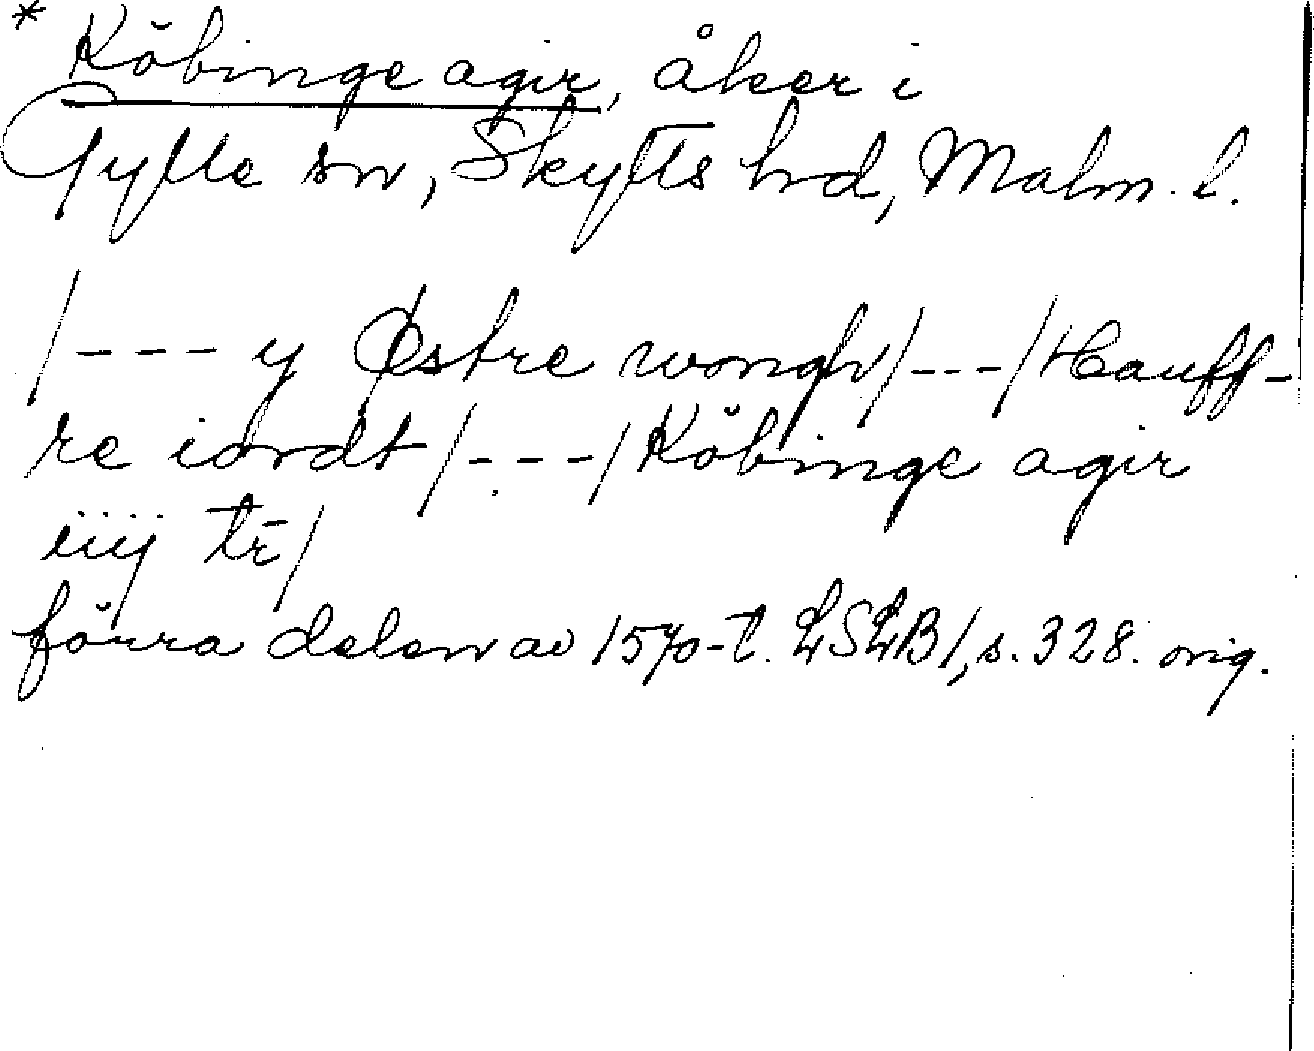 * Köbinge agir, åker i
Gylle sn, Skytts hrd, Malm. l.
/--- y Østre wongh/---/Hauff-
re iordt/---/Köbinge agir
iiij tr̄/
förra delen av 1570-t. LSLB1, s. 328. orig.